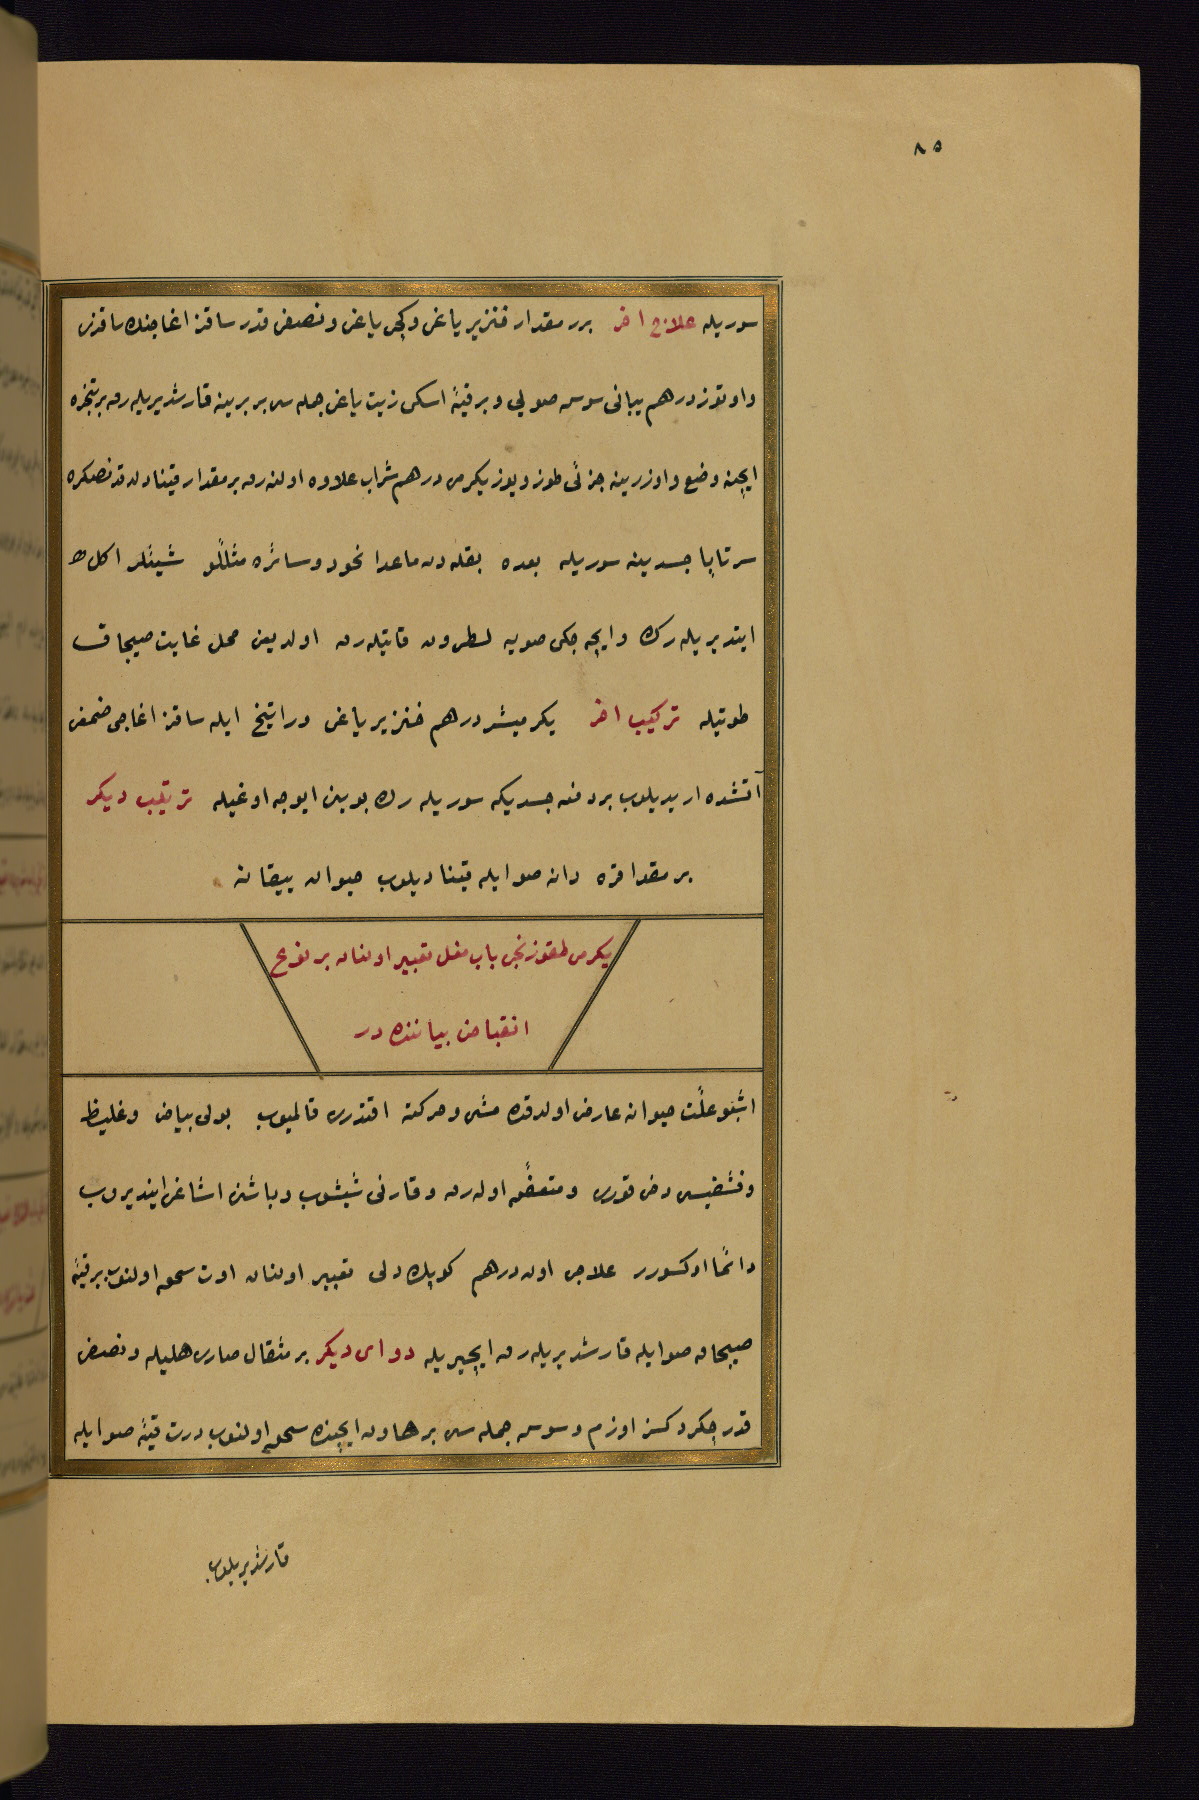 ٨٥
سوریله علاج اخر برر مقدار خنزیر یاغی وکچی یاغی ونصفی قدر ساقز اغاجنك ساقزی
واوتوز درهم یبانی سوسن صویی وبر قیئه اسکی زیت یاغی جمله سی بر برینه قارشدیریله رق بر تنجره
ایچنه وضع واوزرینه جزئی طوز ویوز یکرمی درهم شراب علاوه اولنه رق بر مقدار قینادلدقدنصکره
سرتاپا جسدینه سوریله بعده بقله دن ماعدا نخود وسائره مثللو شیئلر اکل
ایتدیریله رك وایچه جکی صویه نطرون قاتیله رق اولدیغی محل غایت صیجاق
طوتیله ترکیب اخر یکرمیشر درهم خنزیر یاغی وراتینج ایله ساقز اغاجی ضمغی
آتشده اریدیلوب بردفعه جسدیکه سوریله رك بوینی ایوجه اوغیله ترتیب دیکر
بر مقدا قره دانه صو ایله قینادیلوب حیوان ییقانه
یکرمی طقوزنجی باب مغل تعبیر اولنان بر نوع
انقباض بیاننده در
اشبو علت حیوانه عارض اولدقده مشی وحرکته اقتداری قالمیوب بولی بیاض وغلیظ
وفشقیسی دخی قوری ومتعفن اوله رق وقارنی شیشوب وباشنی اشاغی ایندیروب
دائما اوکسورر علاجی اون درهم کوپك دلی تعبیر اولنان اوت سحق اولنوب بر قیئه
صیجاق صو ایله قارشدیریله رق ایچیریله دوای دیکر بر مثقال صاری هلیله ونصفی
قدر چکردکسز اوزم وسوسن جمله سی بر هاون ایچنده سحق اولنوب درت قیئه صو ایله
قارشدیریلوب